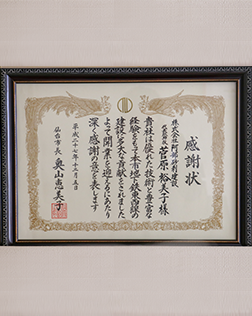 感謝状
株式会社阿部砂利建設
代表取締役
菅原裕美子様
貴社は優れた技術と豊富な
経験をもって本市地下鉄東西線の
建設に多大な貢献をされました
よって開業を迎えるにあたり
深く感謝の意を表します
平成二十七年十二月五日
仙台市長 奥山恵美子